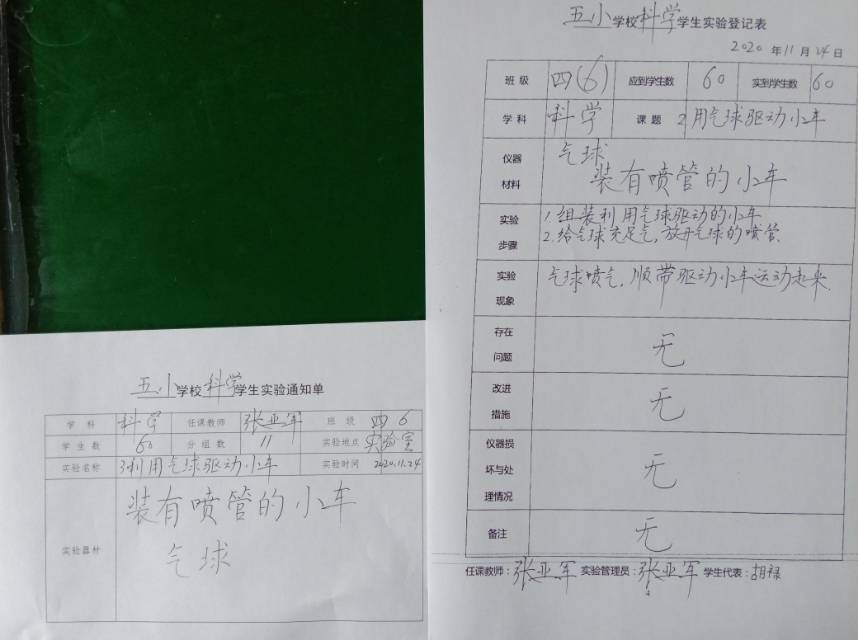 五小学校科学学生实验通知单
学科 科学 任课教师 张亚军 班级 四6
学生数 60 分组数 11 实验地点 实验室
实验名称 利用气球驱动小车 实验时间 2020.11.24
实验器材
装有喷管的小车
气球
五小学校科学学生实验登记表
2020年11月24日
班级 四(6) 应到学生数 60 实到学生数 60
学科 科学 课题 2用气球驱动小车
仪器材料
气球
装有喷管的小车
实验步骤
1.组装利用气球驱动的小车
2.给气球充足气,放开气球的喷管.
实验现象
气球喷气,顺带驱动小车运动起来.
存在问题 无
改进措施 无
仪器损坏与处理情况 无
备注 无
任课教师:张亚军 实验管理员:张亚军 学生代表:胡禄